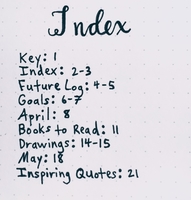 Index
Key: 1
Index: 2-3
Future Log: 4-5
Goals: 6-7
April: 8
Books to Read: 11
Drawings: 14-15
May: 18
Inspiring Quotes: 21